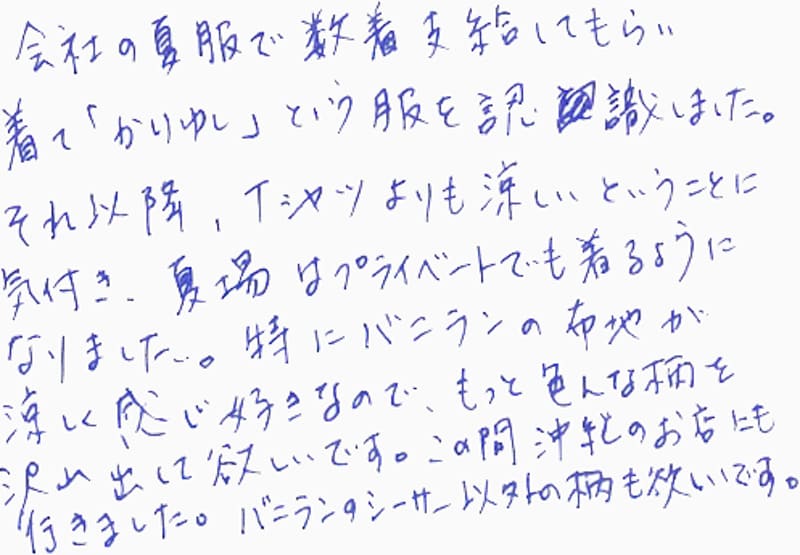 会社の夏服で数着支給してもらい
着て「かりゆし」という服を認識しました。
それ以降、Tシャツよりも涼しいということに
気付き、夏場はプライベートでも着るように
なりました。特にバニランの布地が
涼しく感じ好きなので、もっと色んな柄を
沢山出して欲しいです。この間沖縄のお店にも
行きました。バニランのシーサー以外の柄も欲いです。